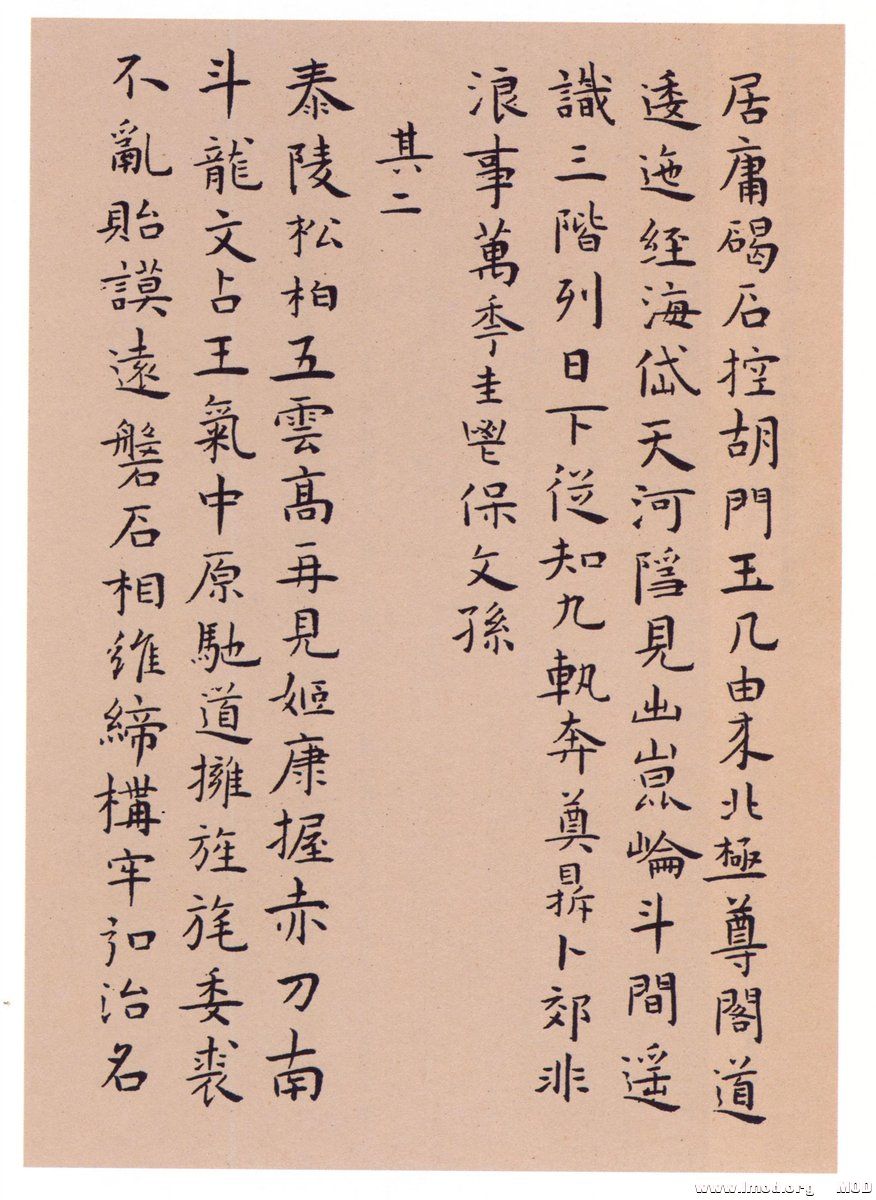 居庸碣石控胡門玉几由來北極尊閣道
逶迤經海岱天河隱見出崑崙斗間遥
識三階列日下從知九軌奔奠鼎卜郊非
浪事萬季圭鬯保文孫
其二
泰陵松柏五雲高再見姬康握赤刀南
斗龍文占王氣中原馳道擁旌旄委裘
不亂貽謨遠磐石相維締構牢弘治名
www.lmod.org MOD